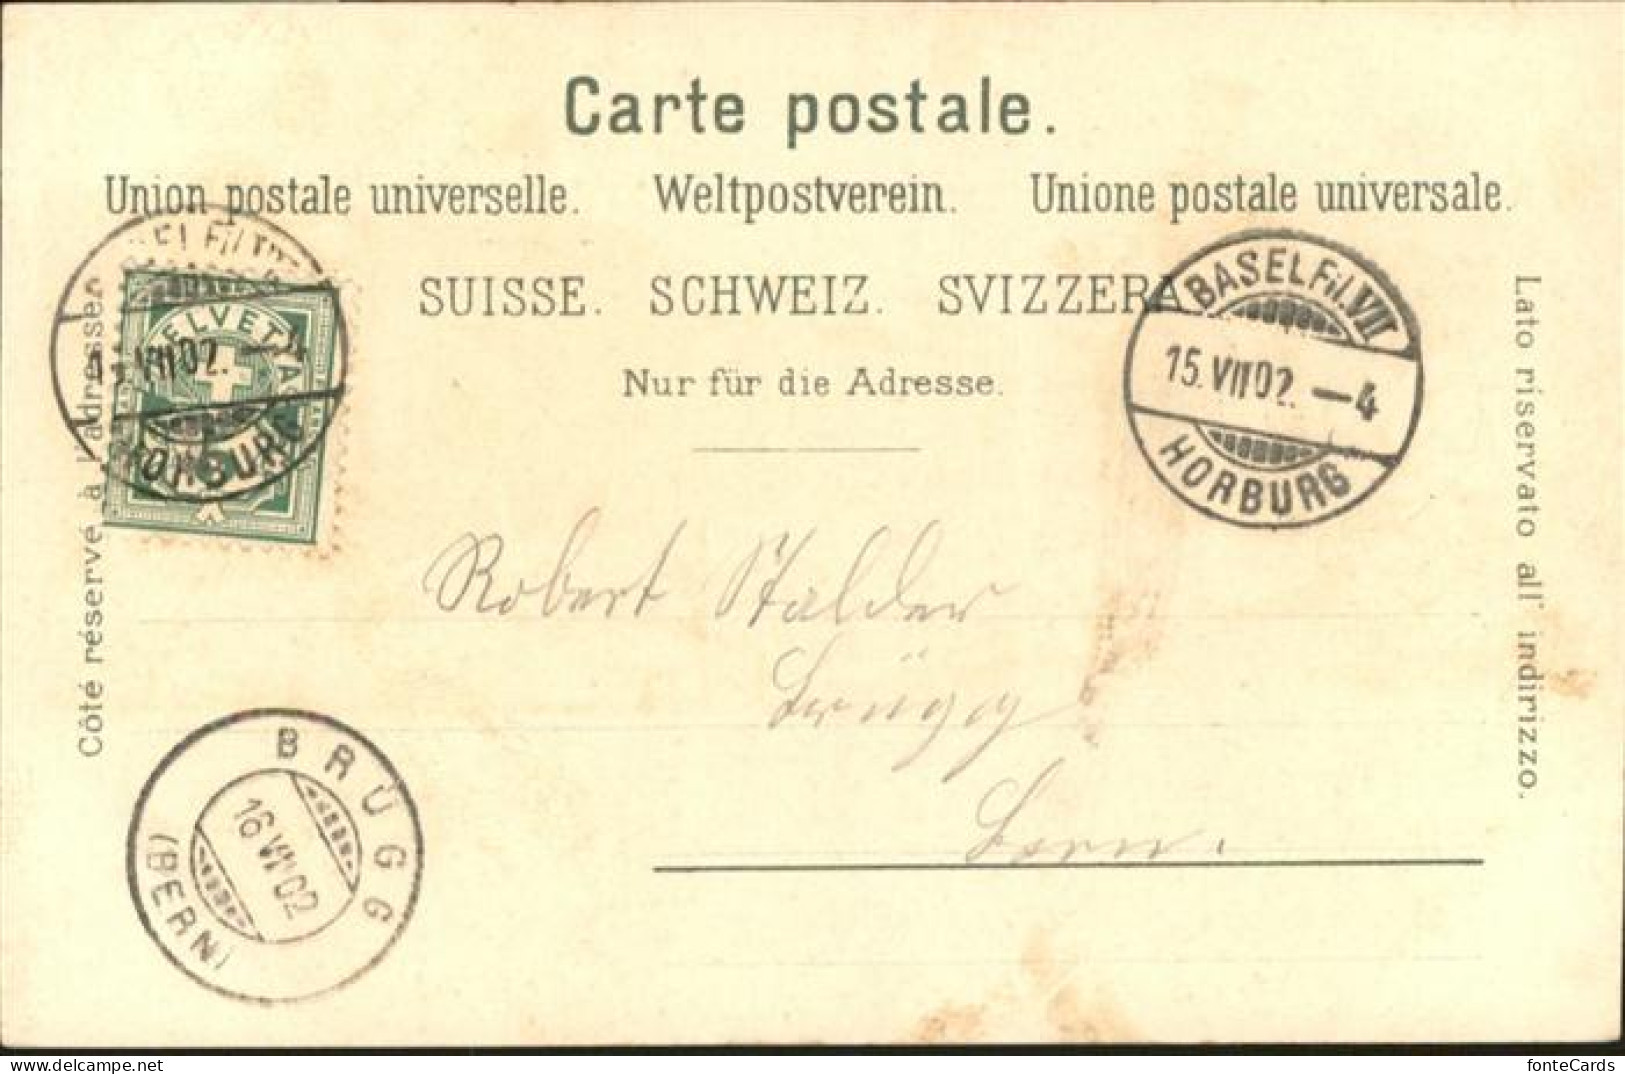 Carte postale.
Union postale universelle. Weltpostverein. Unione postale universale.
SUISSE. SCHWEIZ. SVIZZERA
Nur für die Adresse.
Côté réservé à l'adresse
Lato riservato all' indirizzo.
HELVETIA
VII 02. —4
HORBURG
BASEL Fil. VII
15. VII 02. —4
HORBURG
Robert Stalder
Brügg
Bern.
BRÜGG
16 VII 02
(BERN)
fonteCards